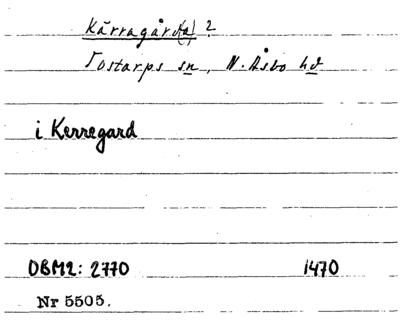 Kärragård(a) 2
Tostarps sn, N. Åsbo hd
i Kerregard
DBM2: 2770 1470
Nr 5505.